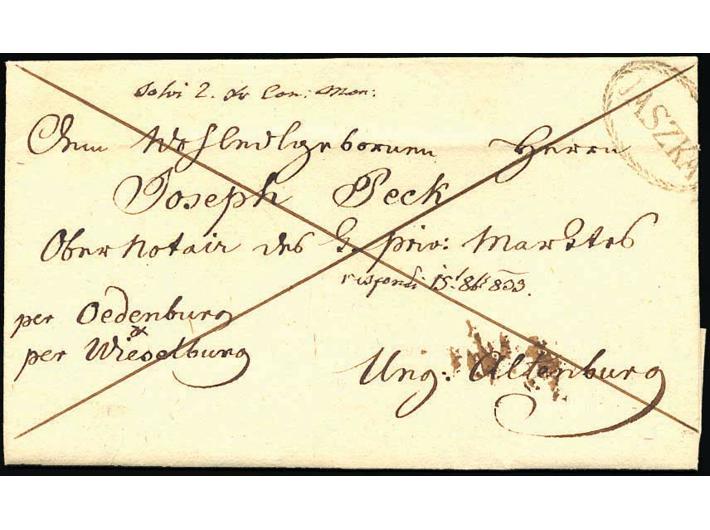 Solvi 2. Xr Con: Mon:
JASZKA
Dem Wohledlgebornen Herrn
Joseph Peck
Ober Notair des k. priv: Marktes
respondi 15t 8br 833.
per Oedenburg
&
per Wieselburg
Ung: Altenburg